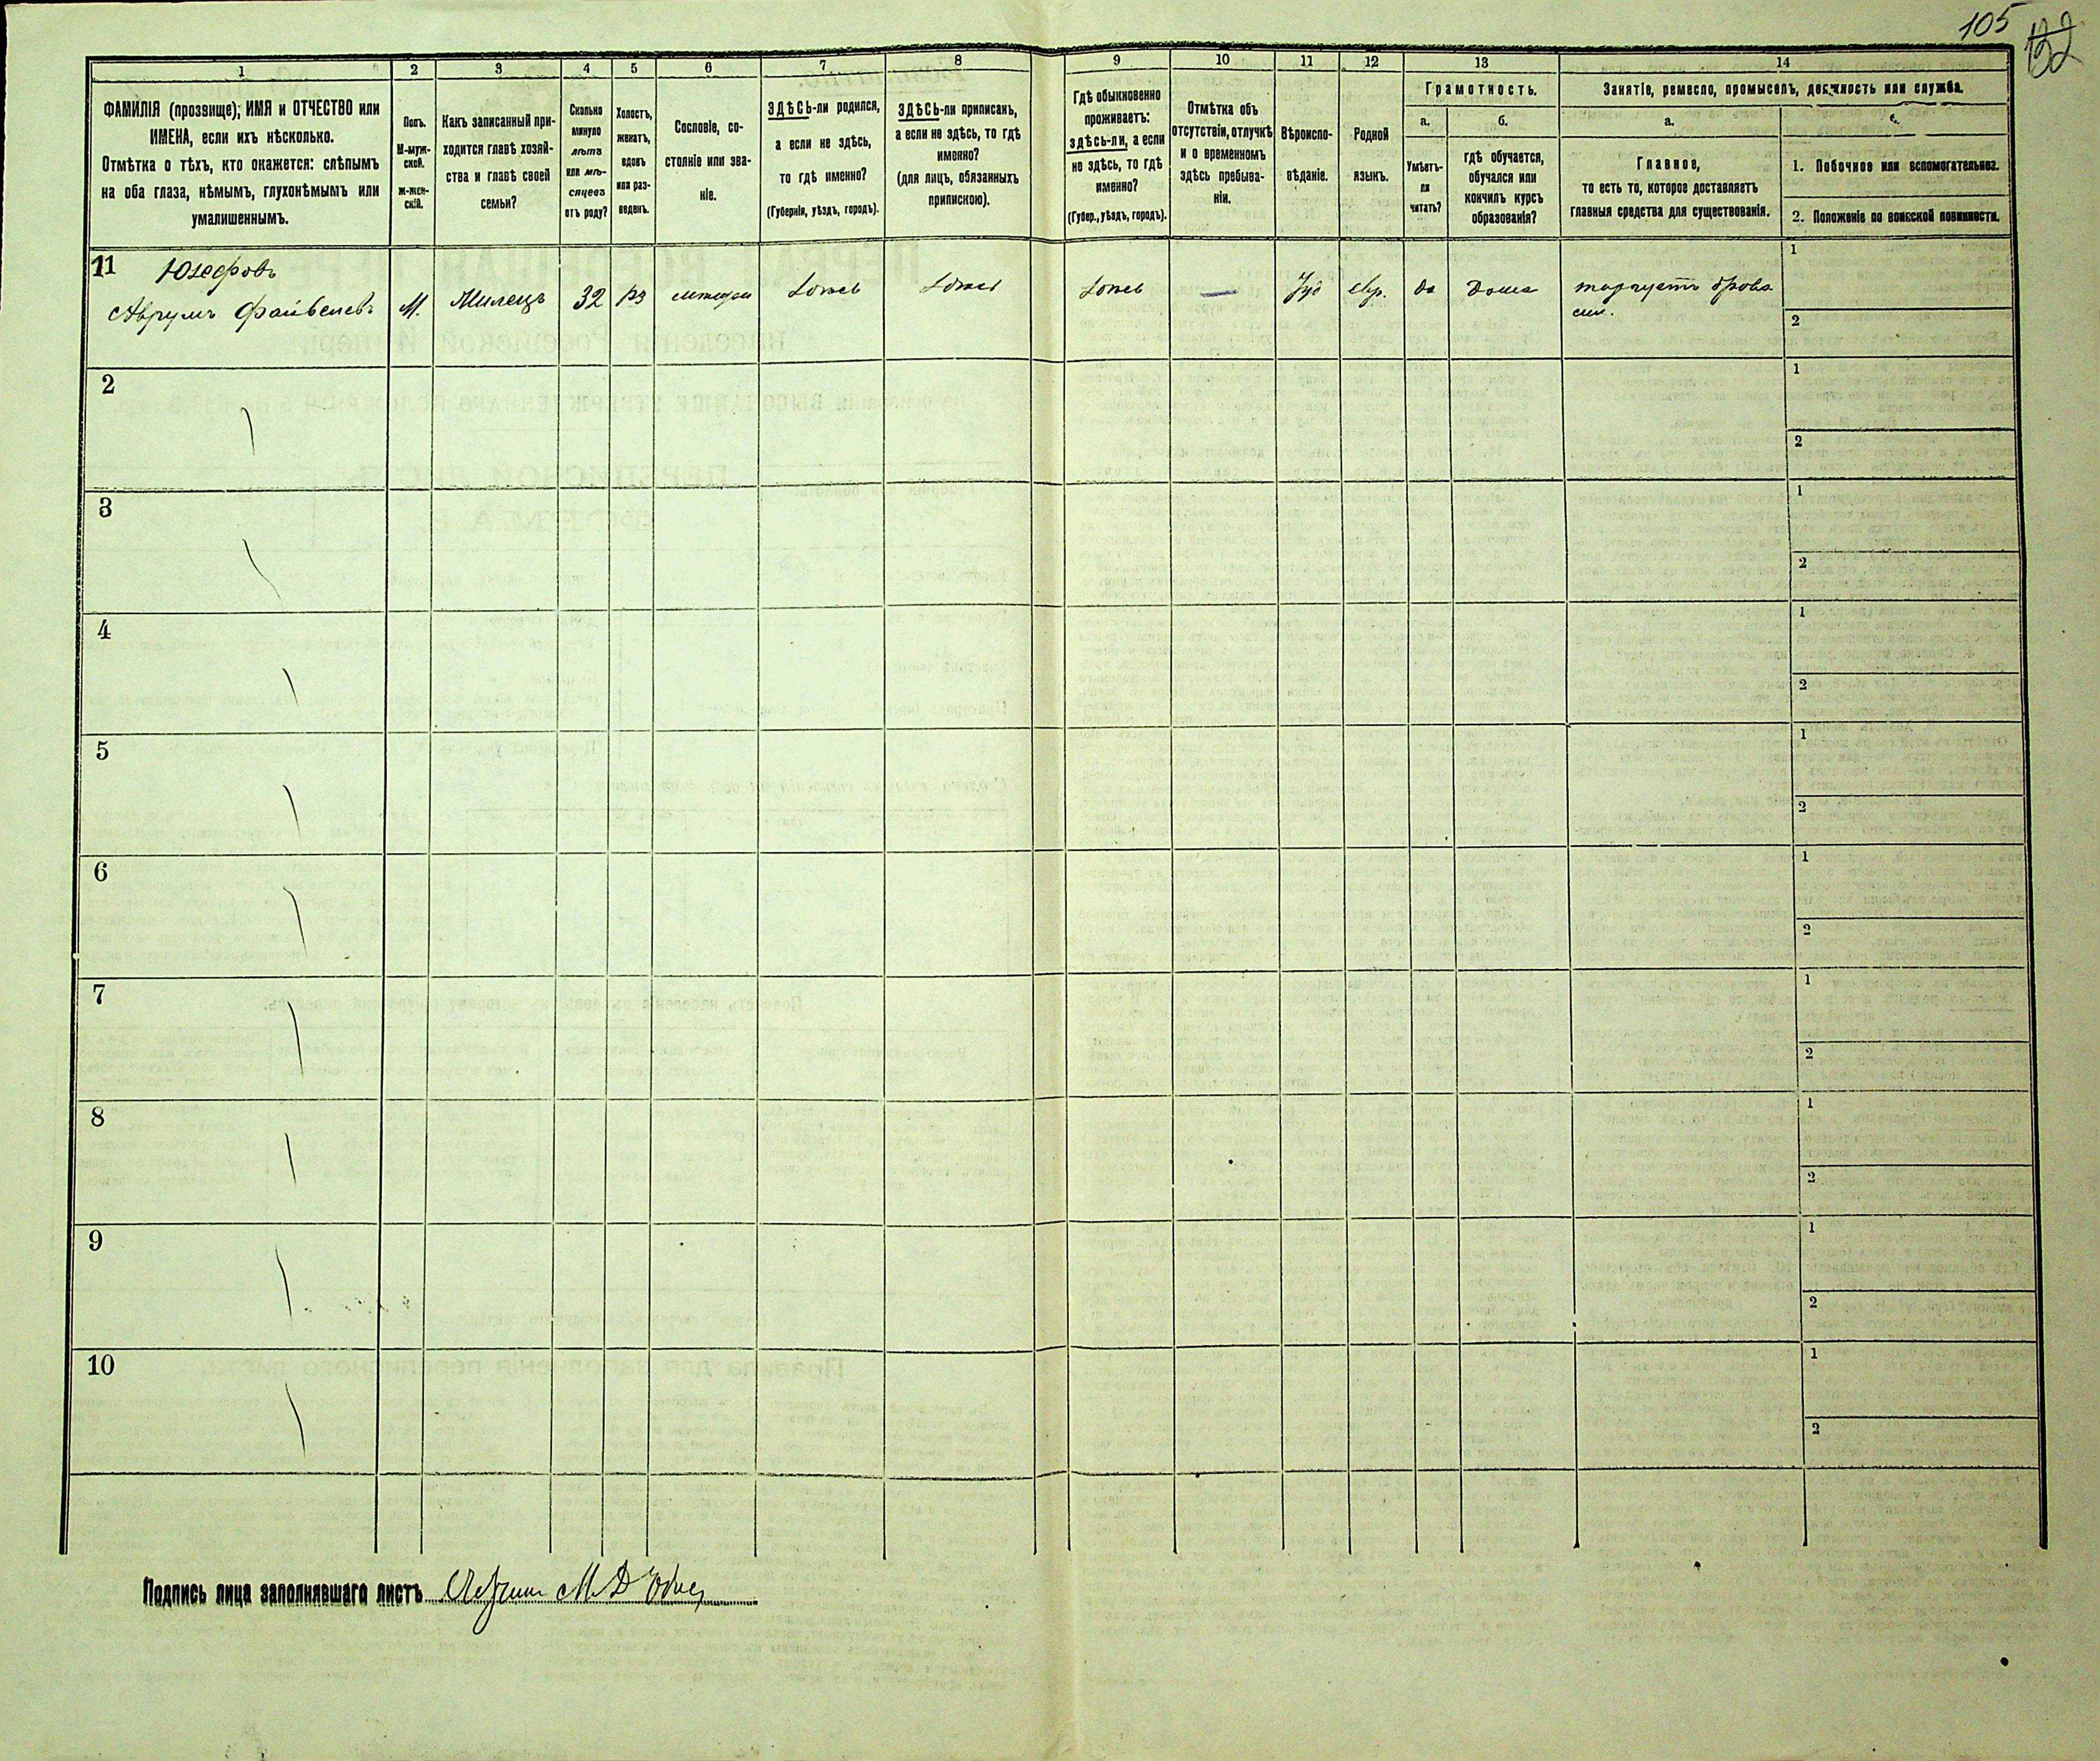 105
132
1
2
3
4
5
6
7
8
9
10
11
12
13
14
ФАМИЛІЯ (прозвище); ИМЯ и ОТЧЕСТВО или
ИМЕНА, если ихъ нѣсколько.
Отмѣтка о тѣхъ, кто окажется: слѣпымъ
на оба глаза, нѣмымъ, глухонѣмымъ или
умалишеннымъ.
Полъ.
М-муж-
ской.
ж-жен-
скій.
Какъ записанный при-
ходится главѣ хозяй-
ства и главѣ своей
семьи?
Сколько
минуло
лѣтъ
или мѣ-
сяцевъ
отъ роду?
Холостъ,
женатъ,
вдовъ
или раз-
веденъ.
Сословіе, со-
стояніе или зва-
ніе.
ЗДѢСЬ-ли родился,
а если не здѣсь,
то гдѣ именно?
(Губернія, уѣздъ, городъ).
ЗДѢСЬ-ли приписанъ,
а если не здѣсь, то гдѣ
именно?
(для лицъ, обязанныхъ
припискою).
Гдѣ обыкновенно
проживаетъ:
здѣсь-ли, а если
не здѣсь, то гдѣ
именно?
(Губер., уѣздъ, городъ).
Отмѣтка объ
отсутствіи, отлучкѣ
и о временномъ
здѣсь пребыва-
ніи.
Вѣроиспо-
вѣданіе.
Родной
языкъ.
Грамотность.
а.
Умѣетъ-
ли
читать?
б.
гдѣ обучается,
обучался или
кончилъ курсъ
образованія?
Занятіе, ремесло, промыселъ, должность или служба.
а.
Главное,
то есть то, которое доставляетъ
главныя средства для существованія.
1. Побочное или вспомогательное.
2. Положеніе по воинской повинности.
11 Юзефовъ
Аврумъ Файвелевъ М. 32 Іуд евр. да Дома торгуетъ дрова
ми.
1
2
2
1
2
3
1
2
4
1
2
5
1
2
6
1
2
7
1
2
8
1
2
9
1
2
10
1
2
Подпись лица заполнявшаго листъ